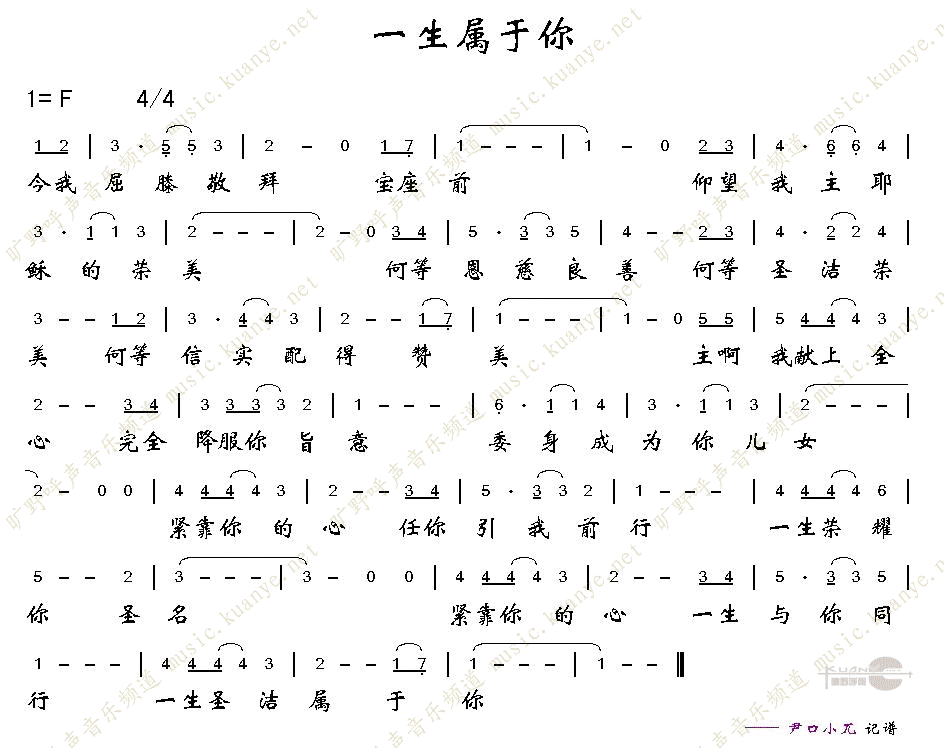 一生属于你
1= F 4/4
1 2 | 3 · 5 5 3 | 2 – 0 1 7 | 1 – – – | 1 – 0 2 3 | 4 · 6 6 4 |
今我 屈 膝 敬 拜 宝座 前 仰望 我 主 耶
3 · 1 1 3 | 2 – – – | 2 – 0 3 4 | 5 · 3 3 5 | 4 – – 2 3 | 4 · 2 2 4 |
稣 的 荣 美 何等 恩 慈 良 善 何等 圣 洁 荣
3 – – 1 2 | 3 · 4 4 3 | 2 – – 1 7 | 1 – – – | 1 – 0 5 5 | 5 4 4 4 3 |
美 何等 信 实 配 得 赞 美 主啊 我献上 全
2 – – 3 4 | 3 3 3 3 2 | 1 – – – | 6 · 1 1 4 | 3 · 1 1 3 | 2 – – –
心 完全 降服你 旨 意 委 身 成 为 你 儿 女
2 – 0 0 | 4 4 4 4 3 | 2 – – 3 4 | 5 · 3 3 2 | 1 – – – | 4 4 4 4 6 |
紧靠你 的 心 任你 引 我 前 行 一生荣 耀
5 – – 2 | 3 – – – | 3 – 0 0 | 4 4 4 4 3 | 2 – – 3 4 | 5 · 3 3 5 |
你 圣 名 紧靠你 的 心 一生 与 你 同
1 – – – | 4 4 4 4 3 | 2 – – 1 7 | 1 – – – | 1 – – ‖
行 一生圣 洁 属 于 你
—— 尹口小瓦 记谱
旷野呼声音乐频道 music.kuanye.net
KUAN
旷野呼声